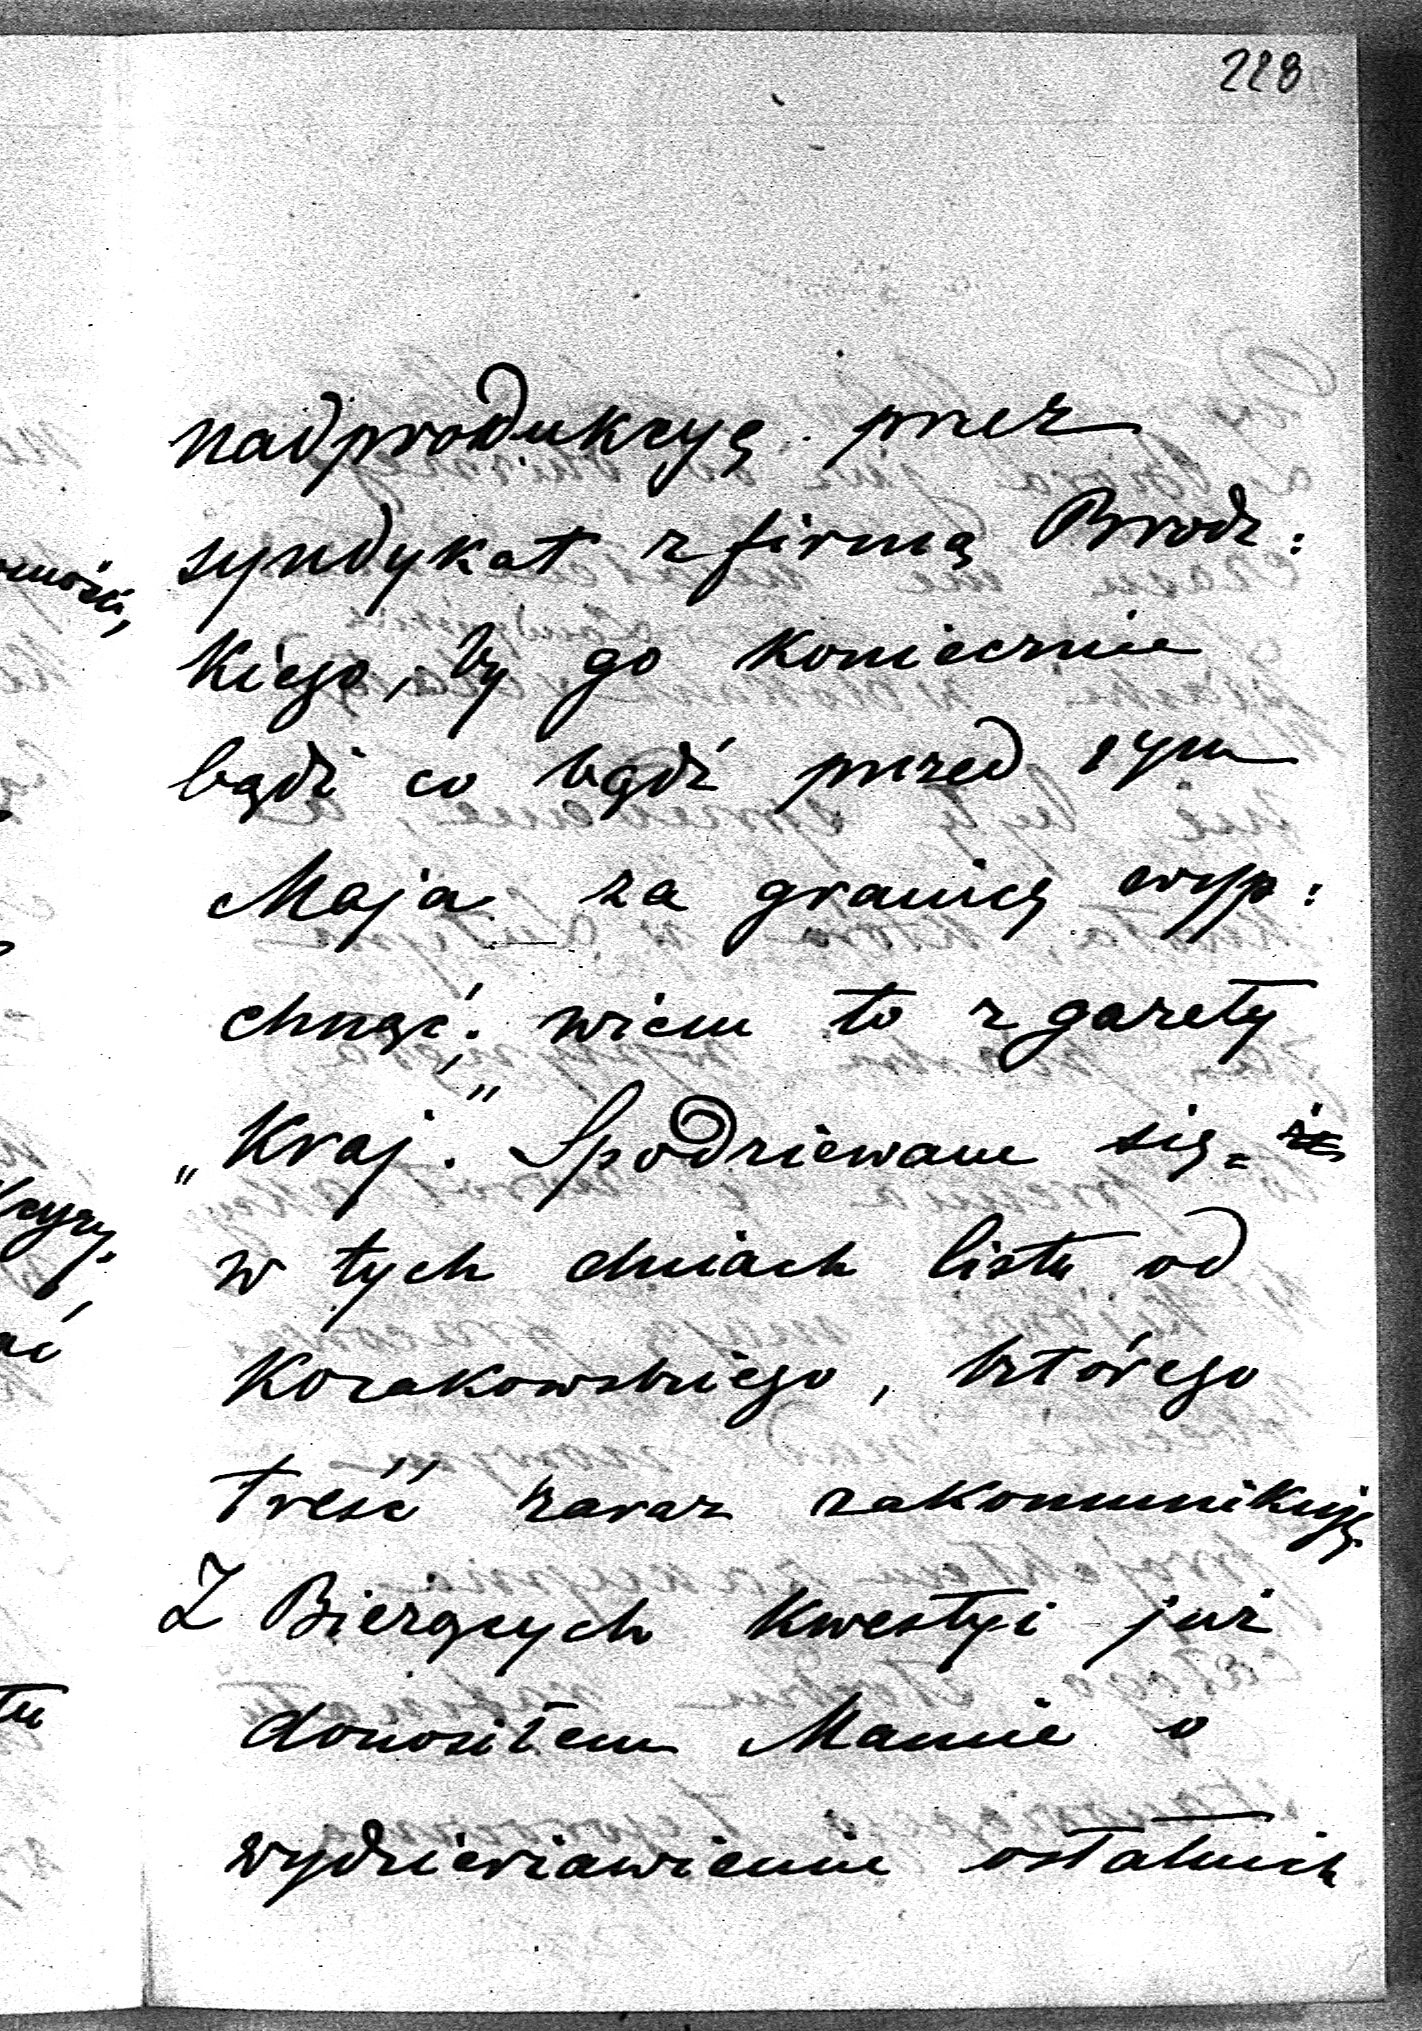 228
nadprodukcyę przez
syndykat z firmą Brodz:
kiego, by go koniecznie
bądź co bądź przed 1ym
Maja za granicę wyp:
chnąć; wiem to z gazety
„Kraj." Spodziewam się =
w tych dniach listu od
Kozakowskiego, którego
treść zaraz zakomunikuję.
Z Bieżących kwestyi już
donosiłem Mamie o
wydzierżawienie ostatnich